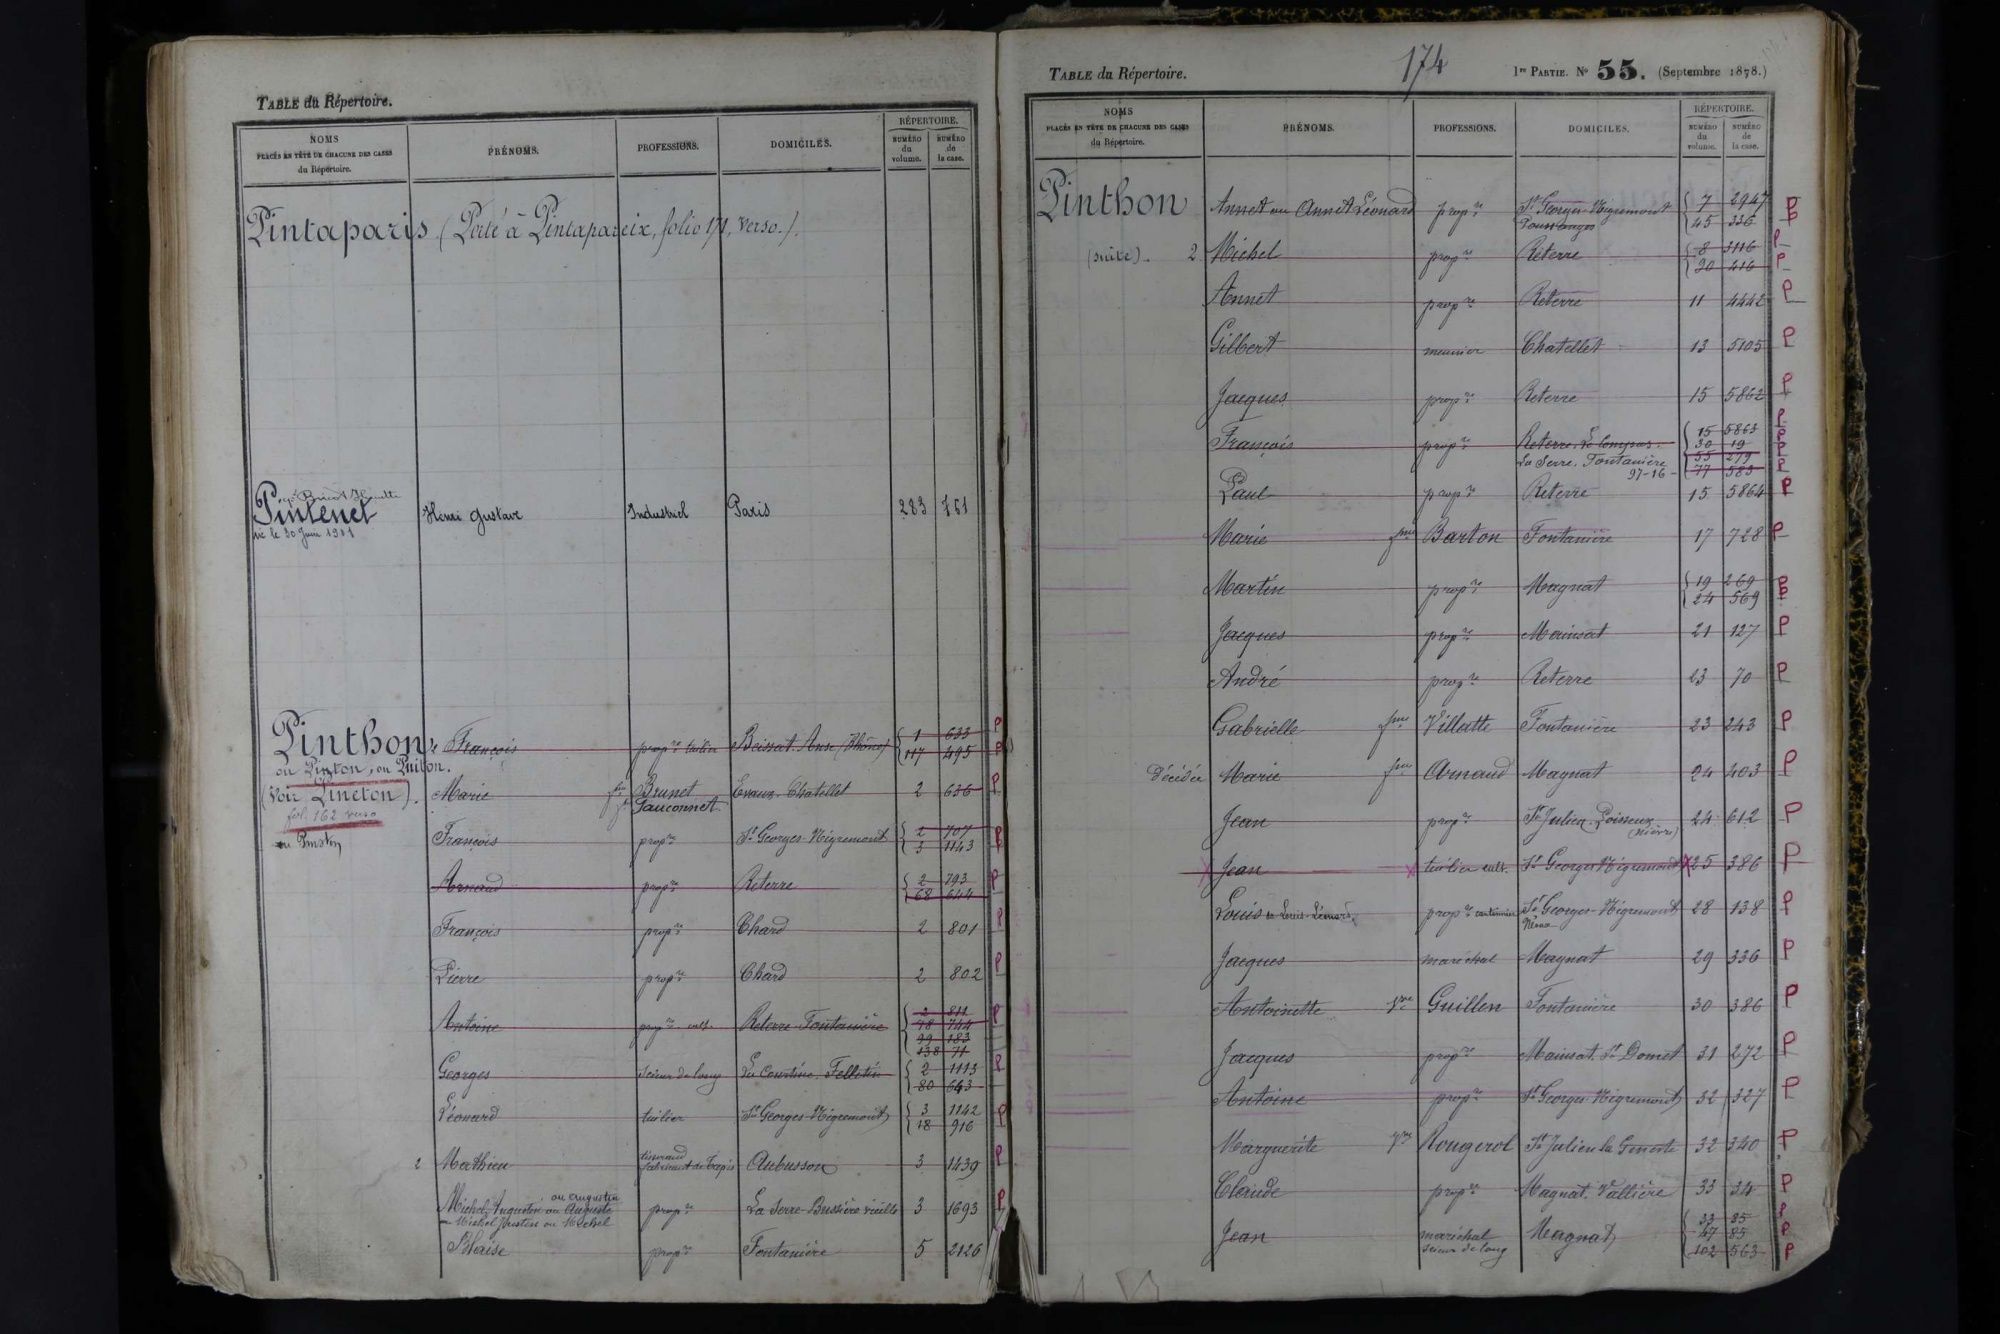 TABLE du Répertoire.
NOMS
PLACÉS EN TÊTE DE CHACUNE DES CASES
du Répertoire.
PRÉNOMS.
PROFESSIONS.
DOMICILES.
RÉPERTOIRE.
NUMÉRO du volume.
NUMÉRO de la case.
Pintaparis (Porté à Pintapareix, folio 171, verso.).
Pintenet Henri Gustave Industriel Paris 283 761
né le 30 Juin 1911
Pinthon François propre tuilier Beissat. Anse (Rhône) 1 633
117 495
ou Pinton, ou Puiton.
(Voir Pineton).
fol. 162 verso
ou Pinston
Marie fme Brunet Evaux. Chatellet 2 636
Fauconnet
François propre St Georges-Nigremont 2 707
3 1143
Arnaud propre Reterre 2 793
68 644
François propre Chard 2 801
Pierre propre Chard 2 802
Antoine propre cult. Reterre Fontanière 2 811
48 744
99 183
138 71
Georges scieur de long La Courtine. Felletin 2 1113
80 643
Léonard tuilier St Georges-Nigremont 3 1142
18 916
2 Mathieu tisserand fabricant de Tapis Aubusson 3 1439
Michel Augustin ou Auguste ou Augustin propre La Serre-Bussière vieille 3 1693
ou Michel Justin ou Michel
Blaise propre Fontanière 5 2126
TABLE du Répertoire.
174
1re PARTIE. No 55. (Septembre 1878.)
NOMS
PLACÉS EN TÊTE DE CHACUNE DES CASES
du Répertoire.
PRÉNOMS.
PROFESSIONS.
DOMICILES.
RÉPERTOIRE.
NUMÉRO du volume.
NUMÉRO de la case.
Pinthon Annet ou Annet Léonard propre St Georges-Nigremont 7 2947
Poussanges 45 336
(suite). 2 Michel propre Reterre 8 3116
30 416
Annet propre Reterre 11 4442
Gilbert meunier Chatellet 13 5105
Jacques propre Reterre 15 5862
François propre Reterre. Le Compas. 15 5863
30 19
La Serre. Fontanière 55 279
97-16 77 583
Paul propre Reterre 15 5864
Marie fme Barton Fontanière 17 728
Martin propre Magnat 19 269
24 569
Jacques propre Mainsat 21 127
André propre Reterre 23 70
Gabrielle fme Villatte Fontanière 23 243
Décédée Marie fme Arnaud Magnat 24 403
Jean propre St Julien. Poisseux (Nièvre) 24 612
Jean tuilier cult. St Georges Nigremont 25 386
Louis ou Louis-Léonard propre cantonnier St Georges-Nigremont 28 138
Néoux
Jacques maréchal Magnat 29 336
Antoinette Vve Guillon Fontanière 30 386
Jacques propre Mainsat. St Domet 31 272
Antoine propre St Georges-Nigremont 32 327
Marguerite Vve Rougerol St Julien la Genete 32 340
Claude propre Magnat. Vallière 33 34
Jean maréchal Magnat 33 35
scieur de long 47 85
102 563